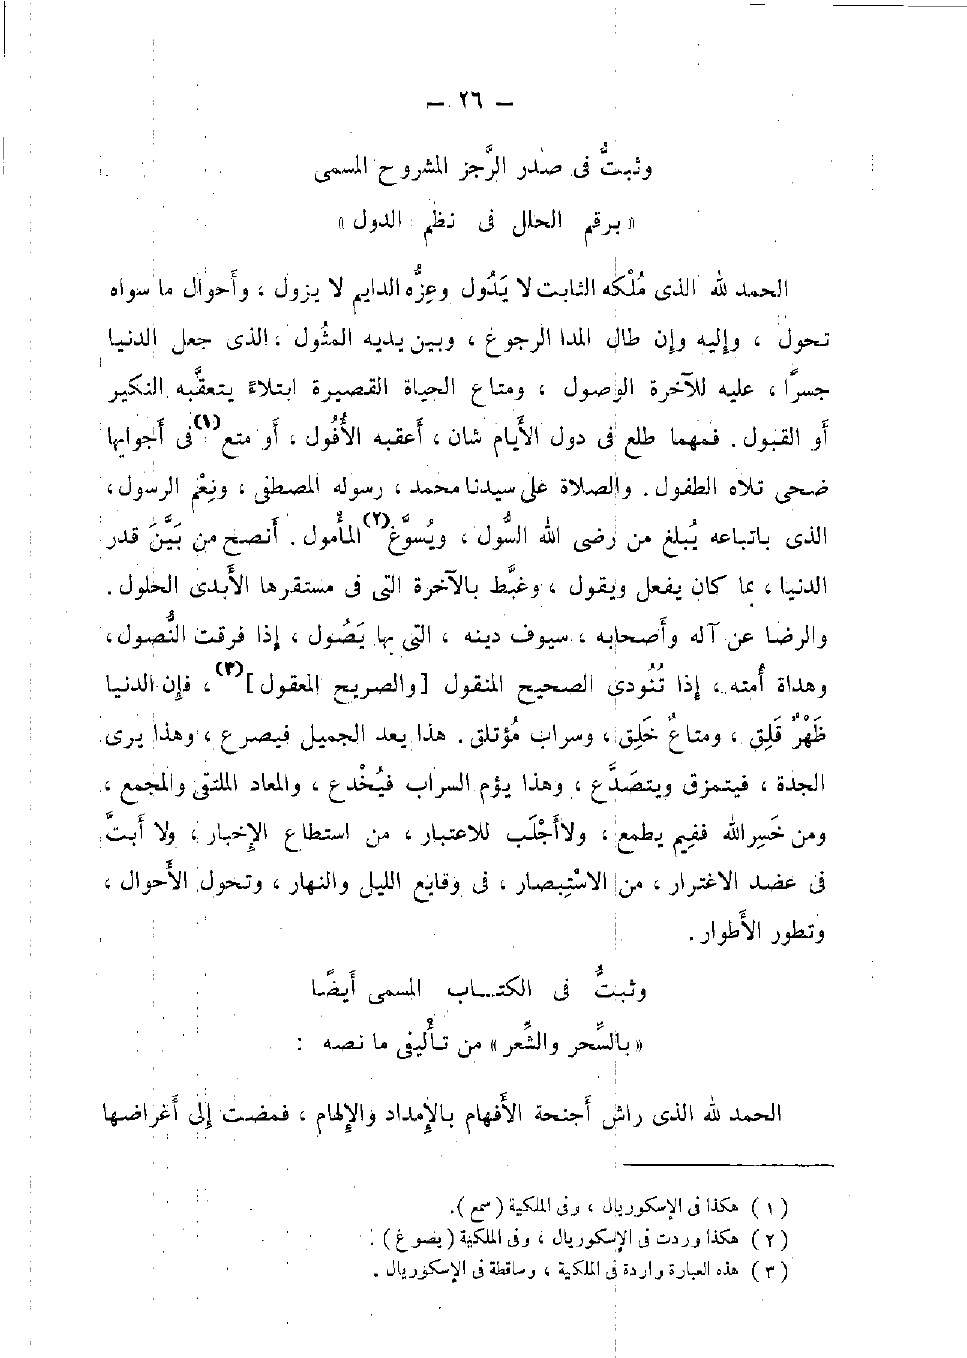 — ٢٦ —
وثبتُّ فى صدر الرَّجز المشروح المسمى
« برقم الحلل فى نظم الدول »
الحمد لله الذى مُلْكه الثابت لا يَدُول وعِزُّه الدايم لا يزول ، وأحوال ما سواه
تحول ، وإليه وإن طال المدا الرجوع ، وبين يديه المثُول ، الذى جعل الدنيا
جسرًا ، عليه للآخرة الوصول ، ومتاع الحياة القصيرة ابتلاءً يتعقَّبه النكير
أو القبول . فمهما طلع فى دول الأيام شان ، أعقبه الأُفُول ، أو متع(١) فى أجوايها
ضحى تلاه الطفول . والصلاة على سيدنا محمد ، رسوله المصطفى ، ونِعْم الرسول ،
الذى باتباعه يُبلغ من رضى الله السُّول ، ويُسوَّغ(٢) المأمول . أنصح من بَيَّنَ قدر
الدنيا ، بما كان يفعل ويقول ، وغبَّط بالآخرة التى فى مستقرها الأَبدى الحلول .
والرضا عن آله وأصحابه ، سيوف دينه ، التى بها يَصُول ، إذا فرقت النُّصول ،
وهداة أُمته ، إذا تُنُودى الصحيح المنقول [والصريح المعقول](٣) ، فإن الدنيا
ظَهْرٌ قَلِق ، ومتاعٌ خَلِق ، وسراب مُؤتلق . هذا يعد الجميل فيصرع ، وهذا يرى
الجدة ، فيتمزق ويتصَدَّع ، وهذا يؤم السراب فيُخْدع ، والمعاد الملتقى والمجمع ،
ومن خَسِر الله ففيم يطمع ، ولا أَجْلَب للاعتبار ، من استطاع الإخبار ، ولا أبتَّ
فى عضد الاغترار ، من الاسْتِبصار ، فى وقايع الليل والنهار ، وتحول الأحوال ،
وتطور الأطوار .
وثبتُّ فى الكتــاب المسمى أيضًا
« بالسِّحر والشِّعر » من تأليفى ما نصه :
الحمد لله الذى راش أجنحة الأَفهام بالإمداد والإلهام ، فمضت إلى أغراضها
(١) هكذا فى الإسكوريال ، وفى الملكية (سمع).
(٢) هكذا وردت فى الإسكوريال ، وفى الملكية (يصوغ) .
(٣) هذه العبارة واردة فى الملكية ، وساقطة فى الإسكوريال .